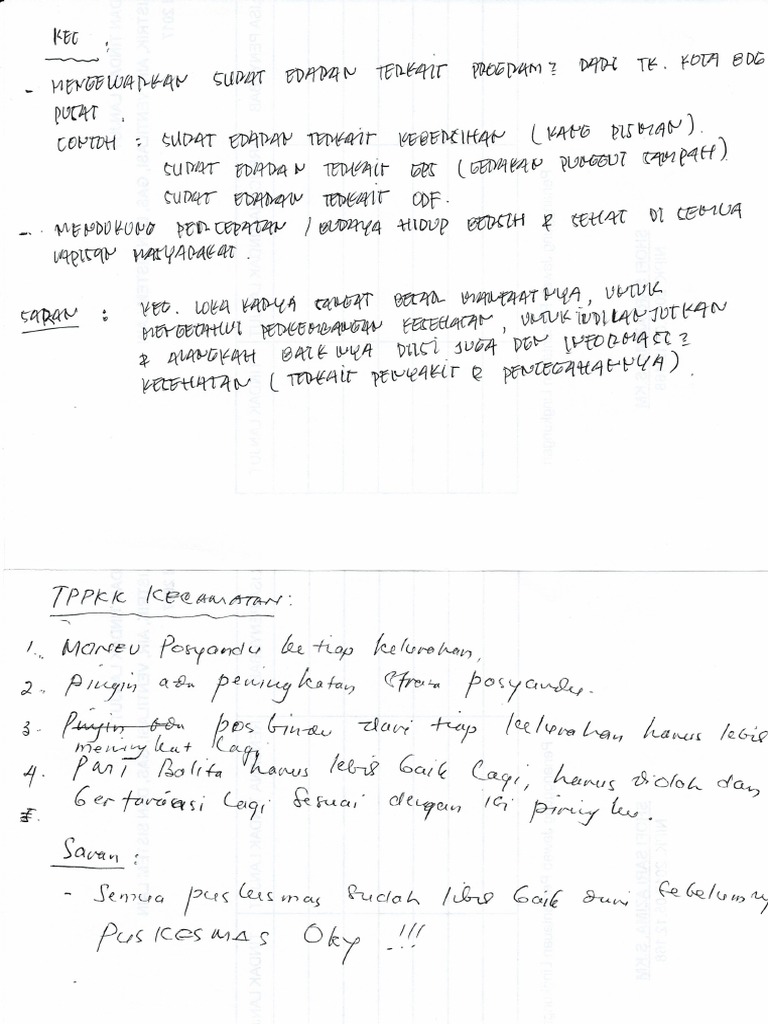 KEC :
- MENGELUARKAN SURAT EDARAN TERKAIT PROGRAM2 DARI TK. KOTA BDG
PUSAT.
CONTOH : SURAT EDARAN TERKAIT KEBERSIHAN (KANG PISMAN).
SURAT EDARAN TERKAIT GPS (GERAKAN PUNGUT SAMPAH)
SURAT EDARAN TERKAIT ODF.
- MENDUKUNG PERCEPATAN / BUDAYA HIDUP BERSIH & SEHAT DI SEMUA
LAPISAN MASYARAKAT.
SARAN : KEG. LOKA KARYA SANGAT BESAR MANFAATNYA, UNTUK
MENGETAHUI PERKEMBANGAN KESEHATAN, UNTUK DILANJUTKAN
& ALANGKAH BAIKNYA DIISI JUGA DEN INFORMASI2
KESEHATAN (TERKAIT PENYAKIT & PENCEGAHANNYA).
TPPKK KECAMATAN :
1. MONEV Posyandu ke tiap kelurahan,
2. Pingin ada peningkatan Strata posyandu.
3. Pingin ada posbindu dari tiap kelurahan harus lebih
meningkat lagi
4. Pmt Balita harus lebih baik lagi, harus diolah dan
bervariasi lagi sesuai dengan isi piringku.
Saran :
- Semua puskesmas sudah lebih baik dari sebelumny
PUSKESMAS Oky !!!